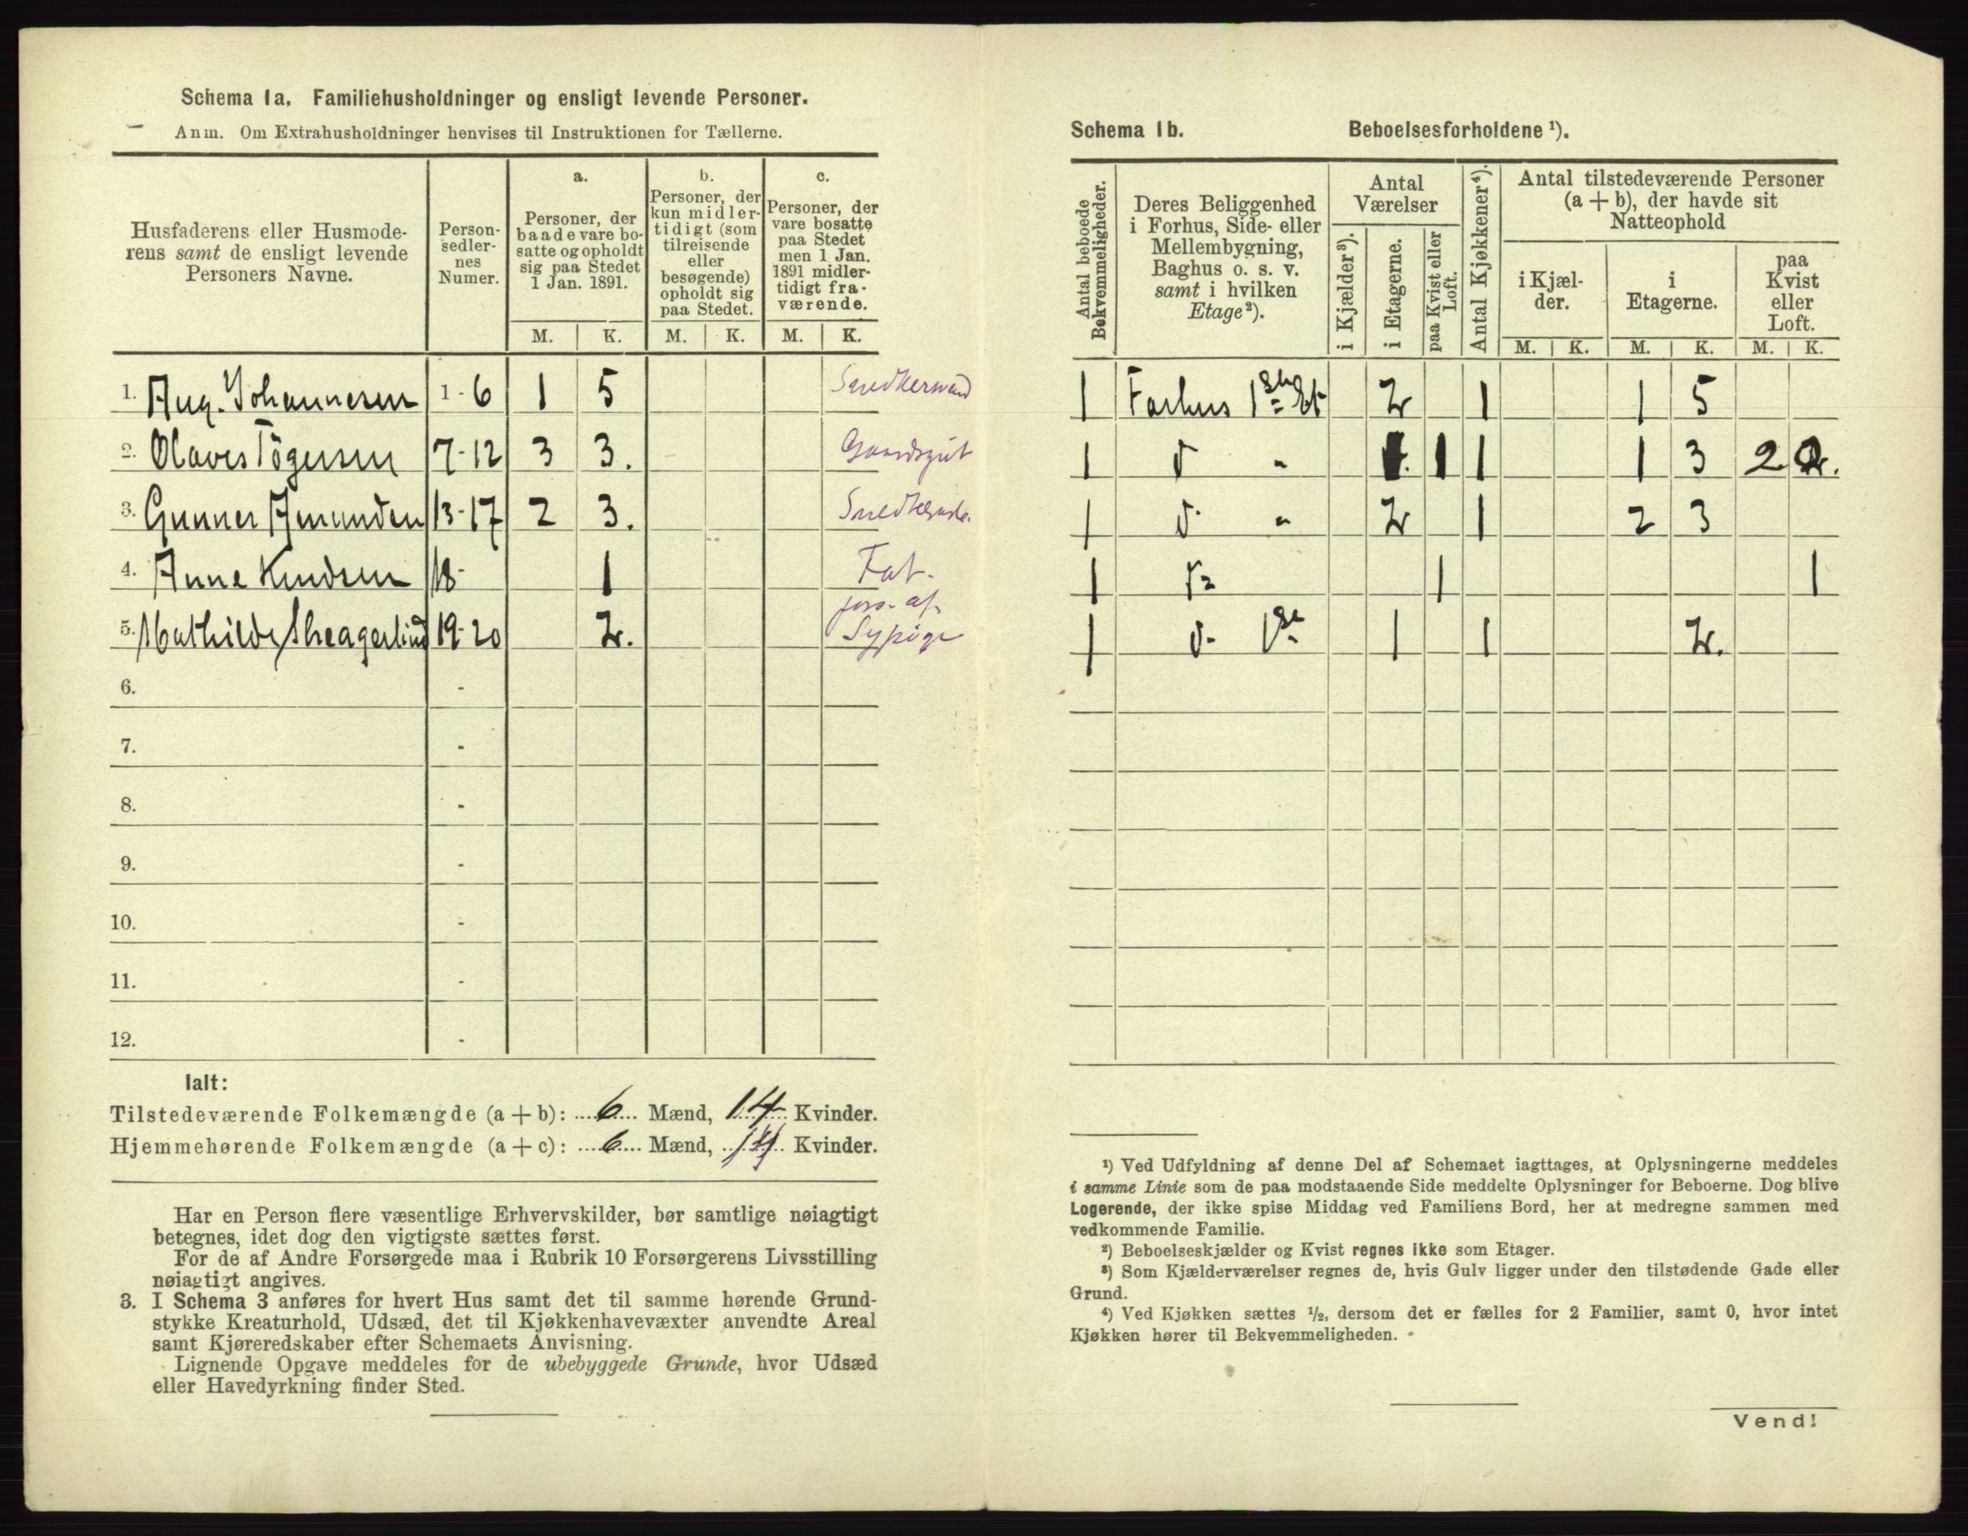 Schema 1a. Familiehusholdninger og ensligt levende Personer.
Anm. Om Extrahusholdninger henvises til Instruktionen for Tællerne.
Husfaderens eller Husmode-
rens samt de ensligt levende
Personers Navne.
Person-
sedler-
nes
Numer.
a.
Personer, der
baade vare bo-
satte og opholdt
sig paa Stedet
1 Jan. 1891.
b.
Personer, der
kun midler-
tidigt (som
tilreisende
eller
besøgende)
opholdt sig
paa Stedet.
c.
Personer, der
vare bosatte
paa Stedet
men 1 Jan.
1891 midler-
tidigt fra-
værende.
M. K. M. K. M. K.
1. Aug. Johannesen 1-6 1 5
2. Olaves Tøgersen 7-12 3 3.
3. Gunner Amunden 13-17 2 3.
4. Anne Knudsen 18- 1 Fat.
5. Mathilde 19-20 2.
6. -
7. -
8. -
9. -
10. -
11. -
12. -
Ialt:
Tilstedeværende Folkemængde (a + b): 6 Mænd, 14 Kvinder.
Hjemmehørende Folkemængde (a + c): 6 Mænd, 14 Kvinder.
Har en Person flere væsentlige Erhvervskilder, bør samtlige nøiagtigt
betegnes, idet dog den vigtigste sættes først.
For de af Andre Forsørgede maa i Rubrik 10 Forsørgerens Livsstilling
nøiagtigt angives.
3. I Schema 3 anføres for hvert Hus samt det til samme hørende Grund-
stykke Kreaturhold, Udsæd, det til Kjøkkenhavevæxter anvendte Areal
samt Kjøreredskaber efter Schemaets Anvisning.
Lignende Opgave meddeles for de ubebyggede Grunde, hvor Udsæd
eller Havedyrkning finder Sted.
Schema 1b. Beboelsesforholdene ¹).
Antal beboede
Bekvemmeligheder.
Deres Beliggenhed
i Forhus, Side- eller
Mellembygning,
Baghus o. s. v.
samt i hvilken
Etage²).
Antal
Værelser
i Kjælder³).
i Etagerne.
paa Kvist eller
Loft.
Antal Kjøkkener⁴).
Antal tilstedeværende Personer
(a + b), der havde sit
Natteophold
i Kjæl-
der.
i
Etagerne.
paa
Kvist
eller
Loft.
M. K. M. K. M. K.
1 Forhus 1ste Et 2 1 1 5
1 d " 1 1 1 1 3 2
1 d " 2 1 2 3
1 1 1
1 d- 1 1 2.
¹) Ved Udfyldning af denne Del af Schemaet iagttages, at Oplysningerne meddeles
i samme Linie som de paa modstaaende Side meddelte Oplysninger for Beboerne. Dog blive
Logerende, der ikke spise Middag ved Familiens Bord, her at medregne sammen med
vedkommende Familie.
²) Beboelseskjælder og Kvist regnes ikke som Etager.
³) Som Kjælderværelser regnes de, hvis Gulv ligger under den tilstødende Gade eller
Grund.
⁴) Ved Kjøkken sættes ½, dersom det er fælles for 2 Familier, samt 0, hvor intet
Kjøkken hører til Bekvemmeligheden.
Vend!